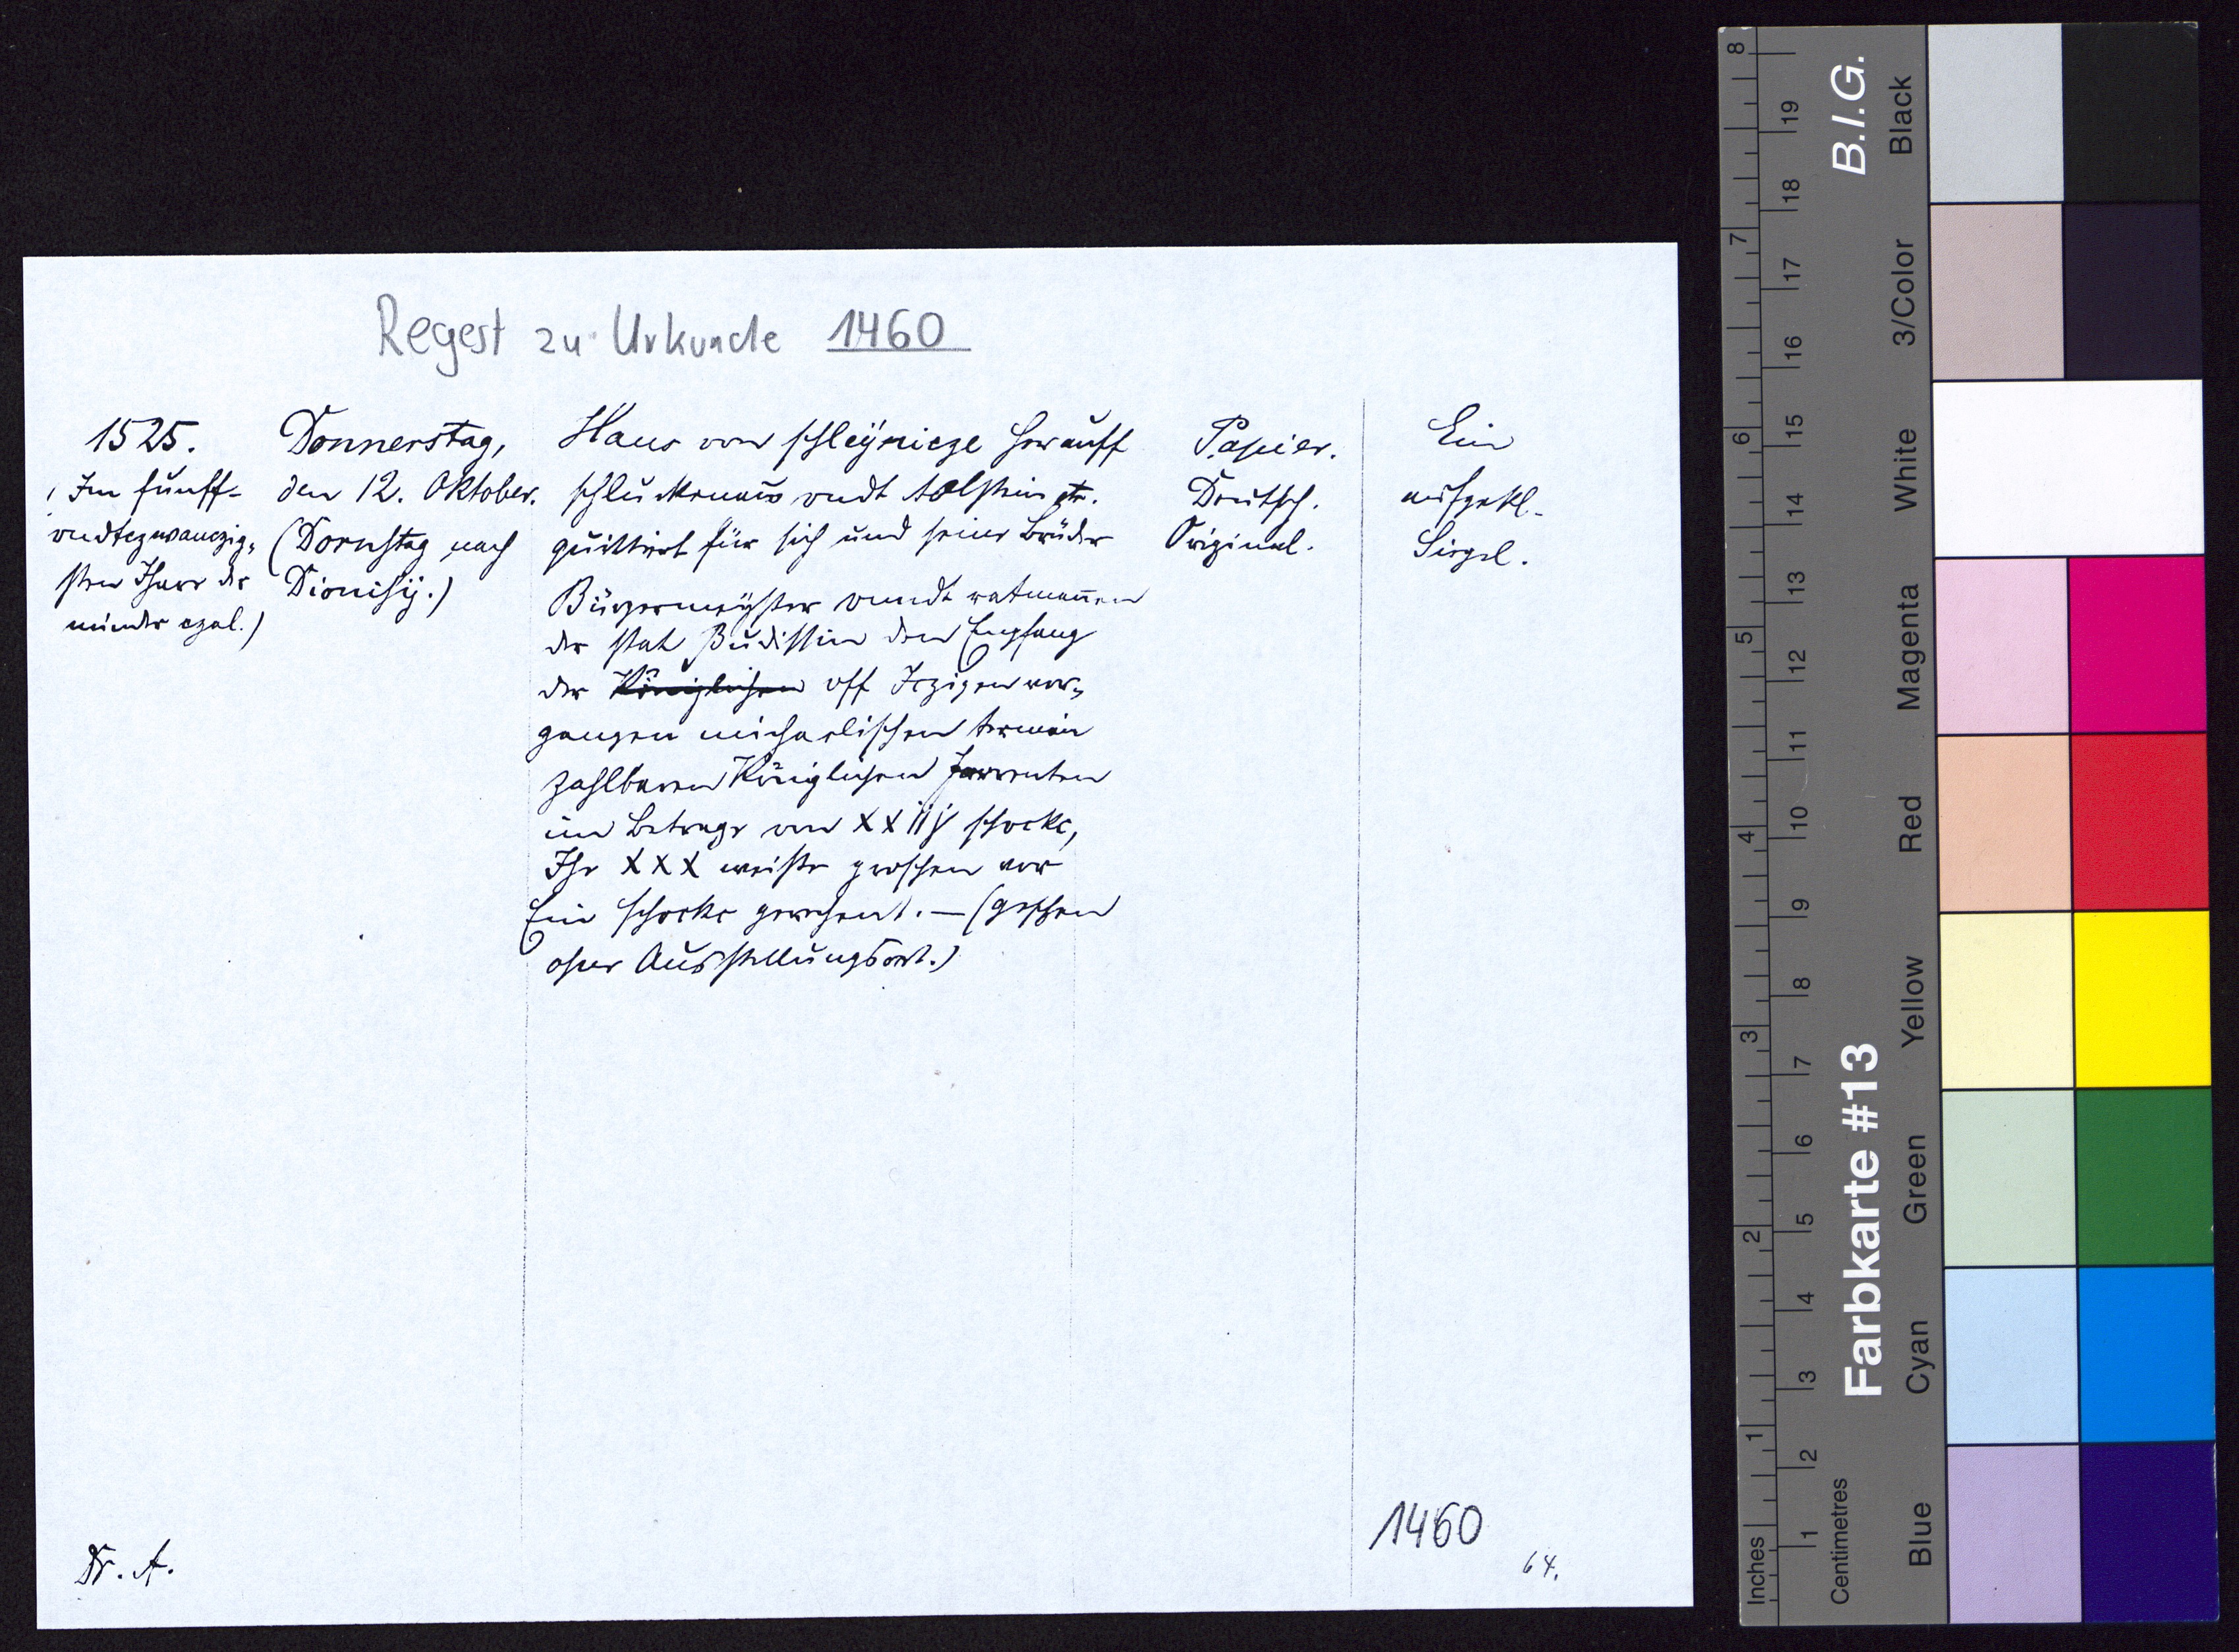 Regest zu Urkunde 1460
1525.
(Im funff-
undtczwanczig„
sten Ihare der
minder czal.)
Donnerstag,
den 12. Oktober.
(Dornstag nach
Dionisij.)
Hans von schleÿnicze her auff
schluckenaw vndt tolstein etc.
quittiert für sich und seine Brüder
Bürgermeÿster vnndt ratmannen
der stat Budissin den Empfang
der Königlichen off Iczigen vor„
gangen michaelischen termin
zahlbaren Königlichen renten
im Betrage von XXiij schocke,
Ihe XXX weisse groschen vor
Ein schocke gerechent. — (Geschehen
ohne Ausstellungsort.)
Papier.
Deutsch.
Original.
Ein
aufgekl.
Siegel.
Dr. A.
1460
64.
Inches
1
2
3
4
5
6
7
8
Centimetres
1
2
3
4
5
6
7
8
9
10
11
12
13
14
15
16
17
18
19
Farbkarte #13
B.I.G.
Blue
Cyan
Green
Yellow
Red
Magenta
White
3/Color
Black